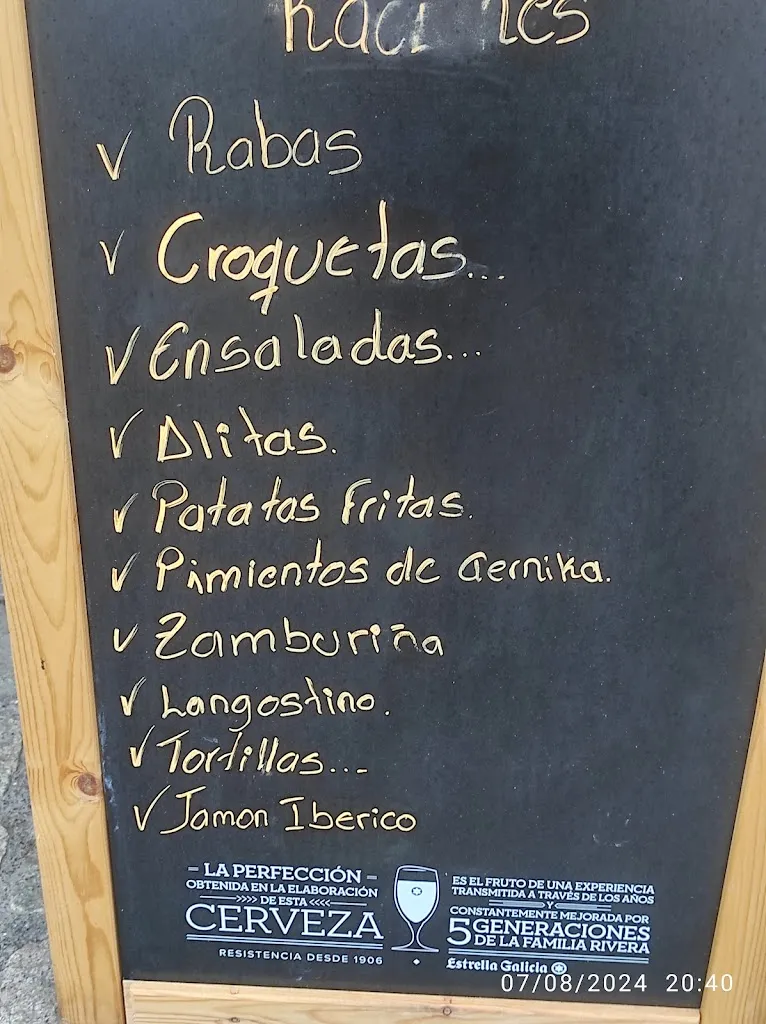 ✓ Rabas
✓ Croquetas...
✓ Ensaladas...
✓ Alitas.
✓ Patatas Fritas.
✓ Pimientos de Gernika.
✓ Zamburiña
✓ Langostino.
✓ Tortillas...
✓ Jamon Iberico
- LA PERFECCIÓN -
OBTENIDA EN LA ELABORACIÓN
DE ESTA
CERVEZA
RESISTENCIA DESDE 1906
ES EL FRUTO DE UNA EXPERIENCIA
TRANSMITIDA A TRAVÉS DE LOS AÑOS
Y
CONSTANTEMENTE MEJORADA POR
5 GENERACIONES
DE LA FAMILIA RIVERA
Estrella Galicia
07/08/2024 20:40